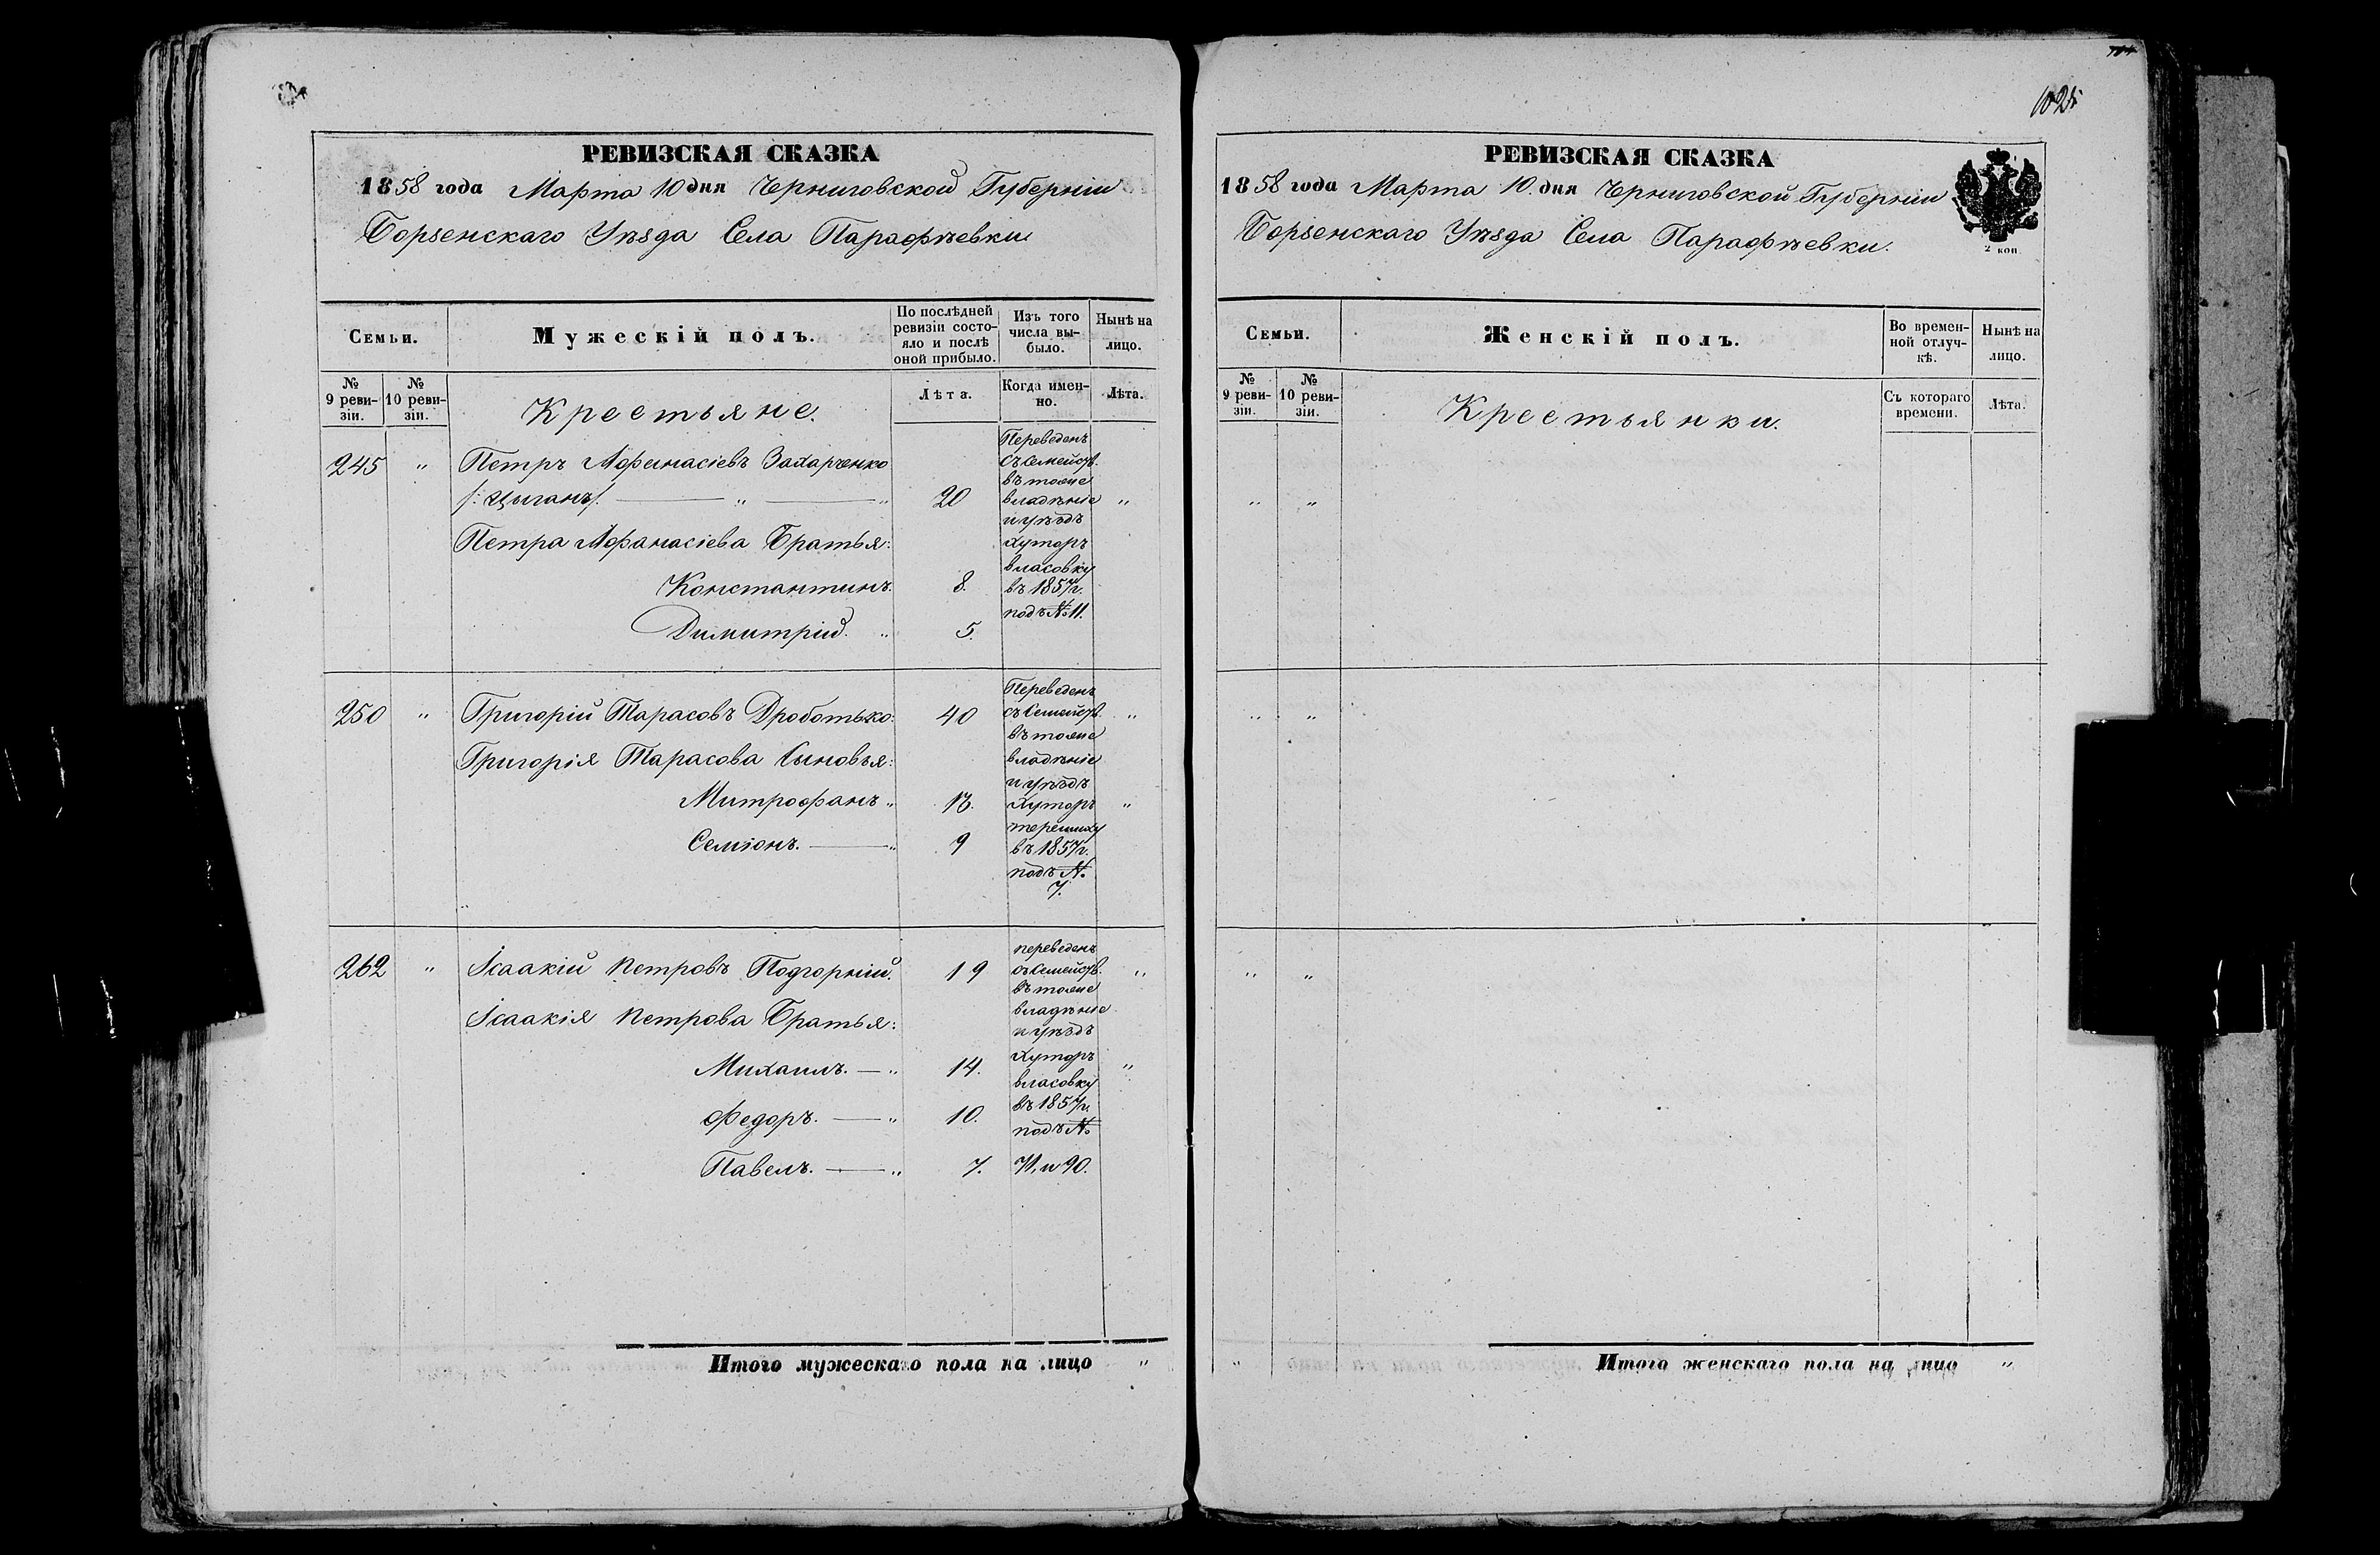 РЕВИЗСКАЯ СКАЗКА
1858 года Марта 10 дня Черниговской Губерніи
Борзенскаго Уѣзда Села Парафѣевки
Семьи.
Мужескій полъ.
По послѣдней ревизіи состояло и послѣ оной прибыло.
Изъ того числа выбыло.
Нынѣ на лицо.
№ 9 ревизіи.
№ 10 ревизіи.
Крестьяне.
Лѣта.
Когда именно.
Лѣта.
245 " Петръ Афанасіевъ Захарченко
/:Цыганъ/. " " 20 "
Петра Афанасіева Братья:
Константинъ. 8.
Димитрій. " 5.
Переведенъ
съ Семейств.
въ тоже
владѣніе
и уѣздъ
Хуторъ
власовку
въ 1857 г.
подъ № 11.
250 " Григорій Тарасовъ Дроботько: 40 "
Григорія Тарасова Сыновья:
Митрофанъ " "
Семіонъ. " 9
Переведенъ
съ Семейств.
въ тоже
владѣніе
и уѣздъ
Хуторъ
терешиху
въ 1857 г.
подъ №
7.
262 " Ісаакій Петровъ Подгорній. 19 "
Ісаакія Петрова Братья:
Михаилъ. " 14. "
Федоръ. " 10.
Павелъ. " 7.
переведенъ
съ Семейств.
въ тоже
владѣніе
и уѣздъ
Хуторъ
власовку
въ 1857 г.
подъ №
71, и 90.
Итого мужескаго пола на лицо "
РЕВИЗСКАЯ СКАЗКА
1858 года Марта 10. дня Черниговской Губерніи
Борзенскаго Уѣзда Села Парафѣевки.
2 коп.
Семьи.
Женскій полъ.
Во временной отлучкѣ.
Нынѣ на лицо.
№ 9 ревизіи.
№ 10 ревизіи.
Крестьянки.
Съ котораго времени.
Лѣта.
" "
" "
" "
" Итого женскаго пола на лицо "